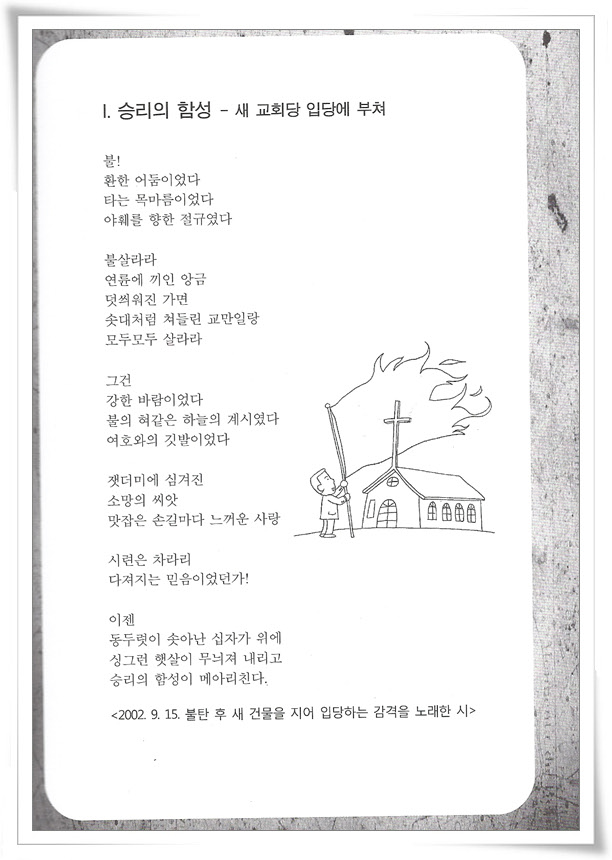 I. 승리의 함성 - 새 교회당 입당에 부쳐
불!
환한 어둠이었다
타는 목마름이었다
야훼를 향한 절규였다
불살라라
연륜에 끼인 앙금
덧씌워진 가면
솟대처럼 쳐들린 교만일랑
모두모두 살라라
그건
강한 바람이었다
불의 혀같은 하늘의 계시였다
여호와의 깃발이었다
잿더미에 심겨진
소망의 씨앗
맛잡은 손길마다 느꺼운 사랑
시련은 차라리
다져지는 믿음이었던가!
이젠
동두렷이 솟아난 십자가 위에
싱그런 햇살이 무늬져 내리고
승리의 함성이 메아리친다.
<2002. 9. 15. 불탄 후 새 건물을 지어 입당하는 감격을 노래한 시>